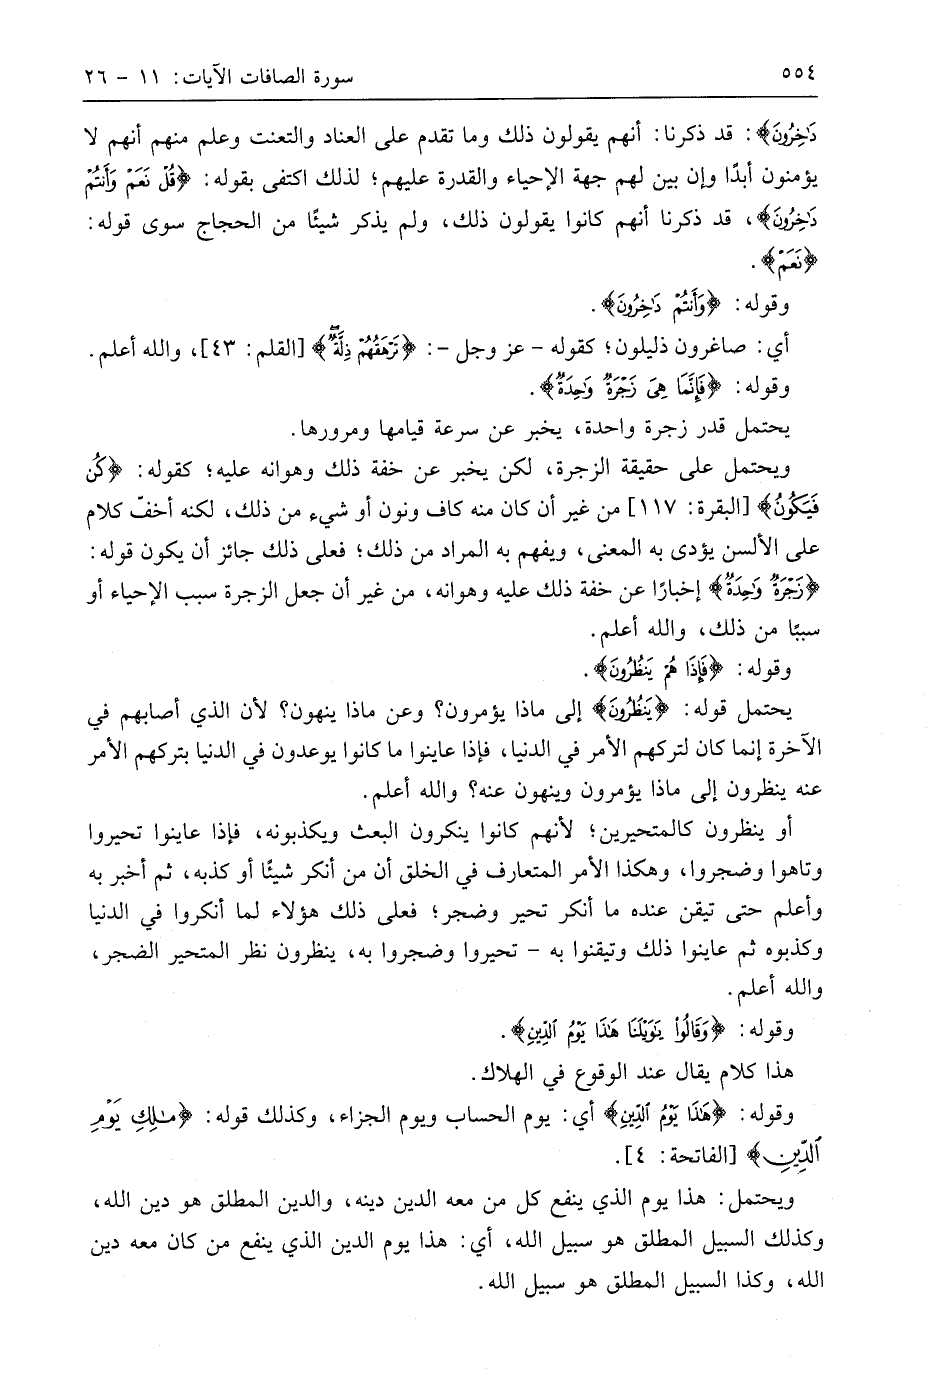 ٥٥٤
سورة الصافات الآيات: ١١ - ٢٦
دَاخِرُونَ﴾: قد ذكرنا: أنهم يقولون ذلك وما تقدم على العناد والتعنت وعلم منهم أنهم لا
يؤمنون أبدًا وإن بين لهم جهة الإحياء والقدرة عليهم؛ لذلك اكتفى بقوله: ﴿قُلْ نَعَمْ وَأَنتُمْ
دَاخِرُونَ﴾، قد ذكرنا أنهم كانوا يقولون ذلك، ولم يذكر شيئًا من الحجاج سوى قوله:
﴿نَعَمْ﴾.
وقوله: ﴿وَأَنتُمْ دَاخِرُونَ﴾.
أي: صاغرون ذليلون؛ كقوله - عز وجل -: ﴿تَرْهَقُهُمْ ذِلَّةٌ﴾ [القلم: ٤٣]، والله أعلم.
وقوله: ﴿فَإِنَّمَا هِىَ زَجْرَةٌ وَٰحِدَةٌ﴾.
يحتمل قدر زجرة واحدة، يخبر عن سرعة قيامها ومرورها.
ويحتمل على حقيقة الزجرة، لكن يخبر عن خفة ذلك وهوانه عليه؛ كقوله: ﴿كُن
فَيَكُونُ﴾ [البقرة: ١١٧] من غير أن كان منه كاف ونون أو شيء من ذلك، لكنه أخفّ كلام
على الألسن يؤدى به المعنى، ويفهم به المراد من ذلك؛ فعلى ذلك جائز أن يكون قوله:
﴿زَجْرَةٌ وَٰحِدَةٌ﴾ إخبارًا عن خفة ذلك عليه وهوانه، من غير أن جعل الزجرة سبب الإحياء أو
سببًا من ذلك، والله أعلم.
وقوله: ﴿فَإِذَا هُمْ يَنظُرُونَ﴾.
يحتمل قوله: ﴿يَنظُرُونَ﴾ إلى ماذا يؤمرون؟ وعن ماذا ينهون؟ لأن الذي أصابهم في
الآخرة إنما كان لتركهم الأمر في الدنيا، فإذا عاينوا ما كانوا يوعدون في الدنيا بتركهم الأمر
عنه ينظرون إلى ماذا يؤمرون وينهون عنه؟ والله أعلم.
أو ينظرون كالمتحيرين؛ لأنهم كانوا ينكرون البعث ويكذبونه، فإذا عاينوا تحيروا
وتاهوا وضجروا، وهكذا الأمر المتعارف في الخلق أن من أنكر شيئًا أو كذبه، ثم أخبر به
وأعلم حتى تيقن عنده ما أنكر تحير وضجر؛ فعلى ذلك هؤلاء لما أنكروا في الدنيا
وكذبوه ثم عاينوا ذلك وتيقنوا به - تحيروا وضجروا به، ينظرون نظر المتحير الضجر،
والله أعلم.
وقوله: ﴿وَقَالُوا۟ يَٰوَيْلَنَا هَٰذَا يَوْمُ ٱلدِّينِ﴾.
هذا كلام يقال عند الوقوع في الهلاك.
وقوله: ﴿هَٰذَا يَوْمُ ٱلدِّينِ﴾ أي: يوم الحساب ويوم الجزاء، وكذلك قوله: ﴿مَٰلِكِ يَوْمِ
ٱلدِّينِ﴾ [الفاتحة: ٤].
ويحتمل: هذا يوم الذي ينفع كل من معه الدين دينه، والدين المطلق هو دين الله،
وكذلك السبيل المطلق هو سبيل الله، أي: هذا يوم الدين الذي ينفع من كان معه دين
الله، وكذا السبيل المطلق هو سبيل الله.